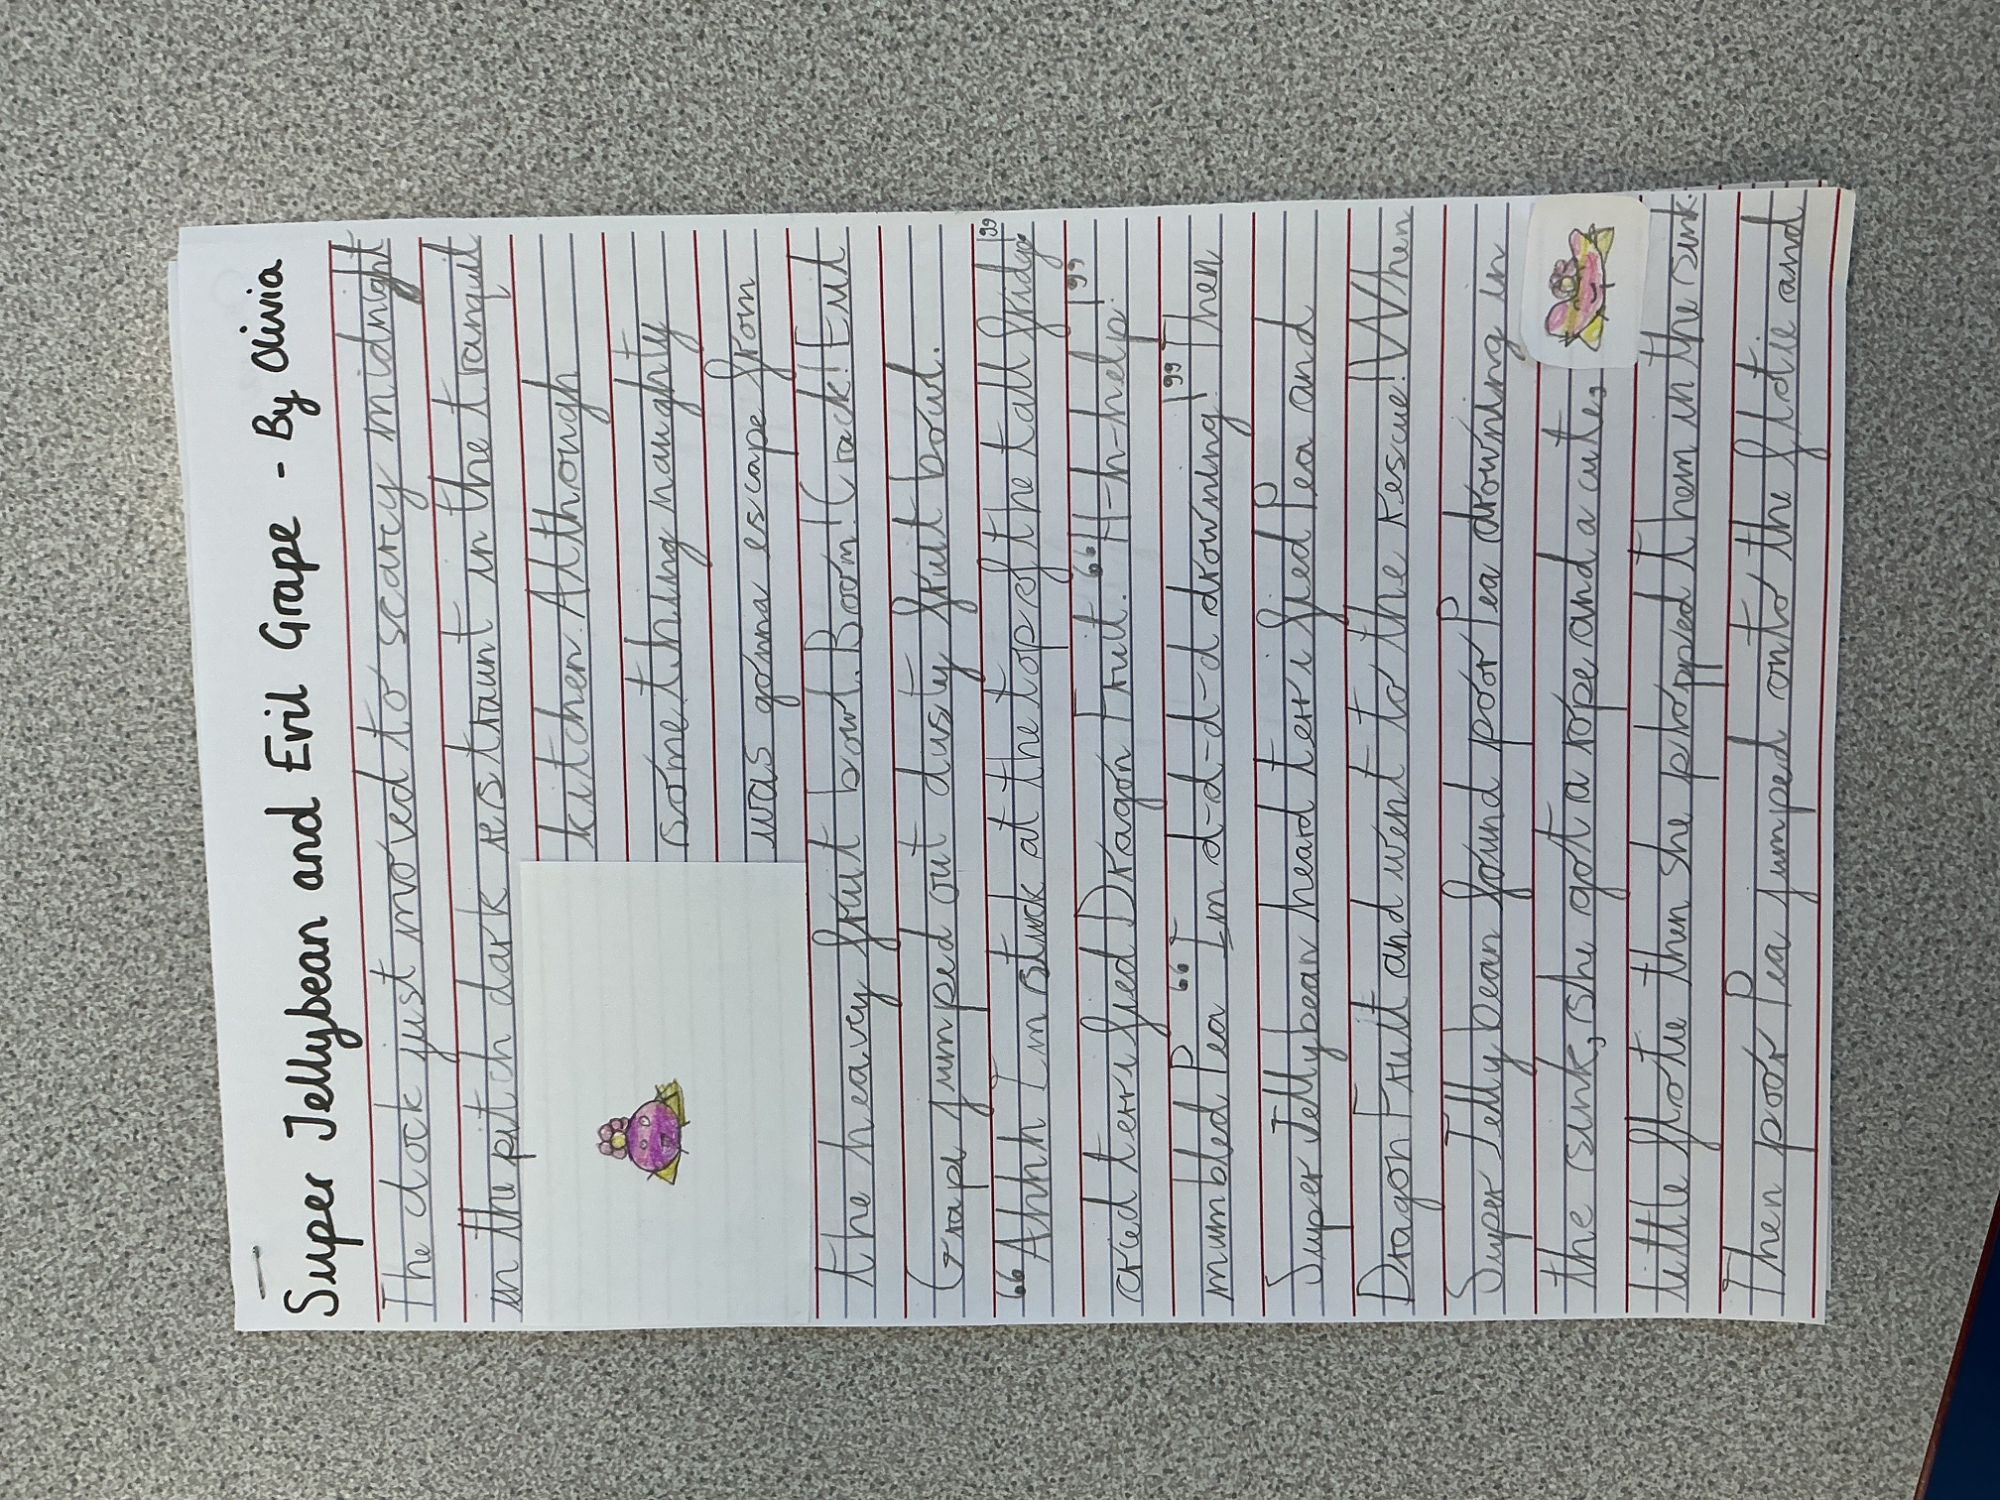 Super Jellybean and Evil Grape - By Olivia
The clock just moved to scarcy midnight
in the pitch dark restraunt in the tranquil
kitchen. Although
something naughty
was gonna escape from
the heavy fruit bowl. Boom! Crack! Evil
Grape jumped out dusty fruit bowl.
"Ahhh I'm stuck at the top of the tall fridge!"
cried terrified Dragon Fruit. "H-h-help!"
mumbled Pea "I'm d-d-d-d drowning!" Then
Super Jellybean heard terrified Pea and
Dragon Fruit and went to the rescue! When
Super Jelly bean found poor Pea drowning in
the sink, she got a rope and a cute,
little flotie then she propped them in the sink.
Then poor Pea jumped onto the flotie and